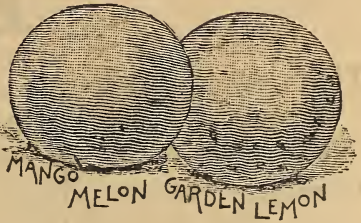 MANGO MELON
GARDEN LEMON